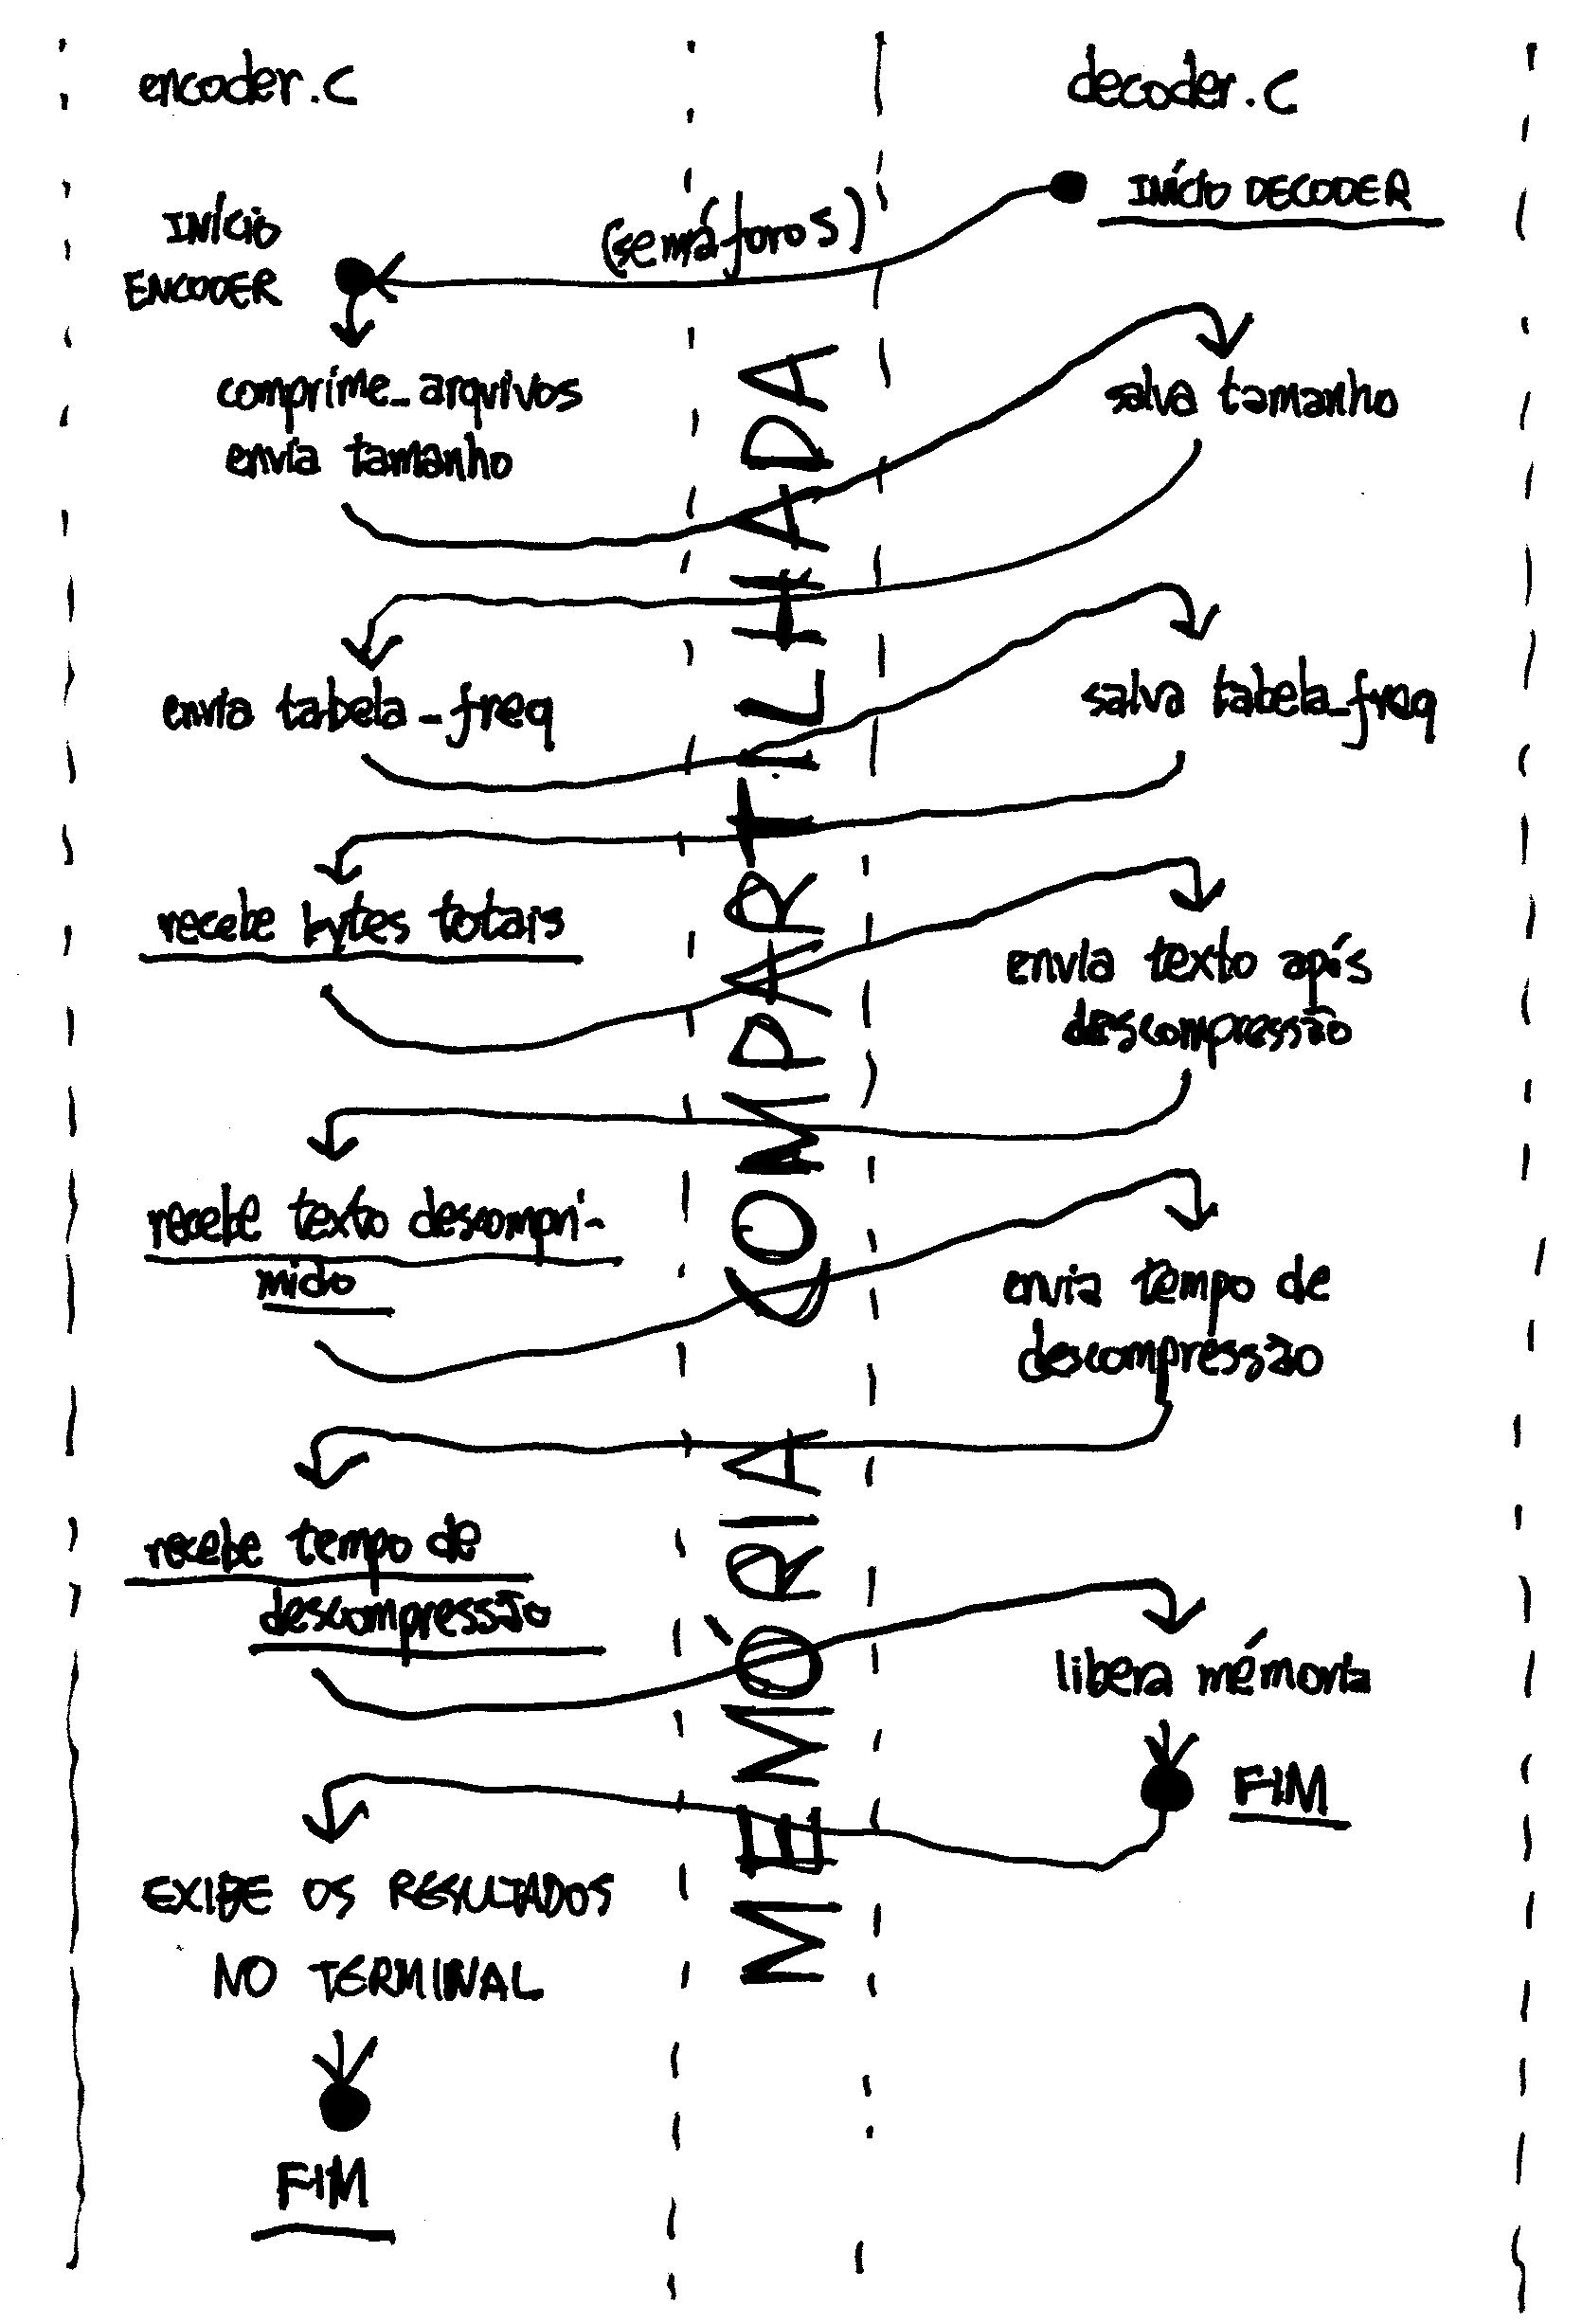 encoder.c
decoder.c
INÍCIO DECODER
INÍCIO
ENCODER
(semáforos)
comprime_arquivos
envia tamanho
salva tamanho
envia tabela_freq
salva tabela_freq
recebe bytes totais
envia texto após
descompressão
recebe texto descompri-
mido
envia tempo de
descompressão
recebe tempo de
descompressão
libera mémoria
FIM
EXIBE OS RESULTADOS
NO TERMINAL
FIM
MEMÓRIA COMPARTILHADA